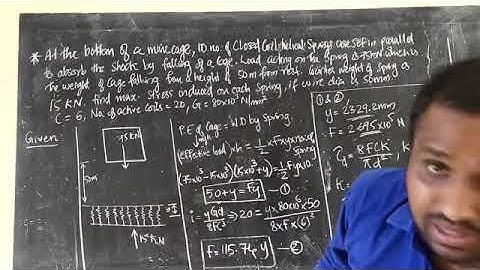 * At the bottom of a mine cage, 10 no. of Closed Coil helical Spring are set in parallel
to absorb the shock by falling of a Cage. Load acting on the Spring is 75 kN which is
the weight of Cage falling from a height of 50m from rest. Counter weight of Spring is
15 KN. find max. stress induced on each Spring, if wire dia is 50mm.
C = 6, No. of active coils = 20, G = 80x10³ N/mm²
Given:
75KN
50m
15 KN
P.E of Cage = W.D by Spring
(effective load) x h = 1/2 x F x y x no. of Spring
(75x10³ - 15x10³)(50+y) = 1/2 F y x 10
50 + y = Fy — ①
i = yGd/8FC³ ⇒ 20 = y x 80x10⁶ x 50/8xFx(6)³
F = 115.74 y — ②
① & ②
y = 2329.2mm
F = 2.695x10⁵ N
τd = 8FCK/πd²